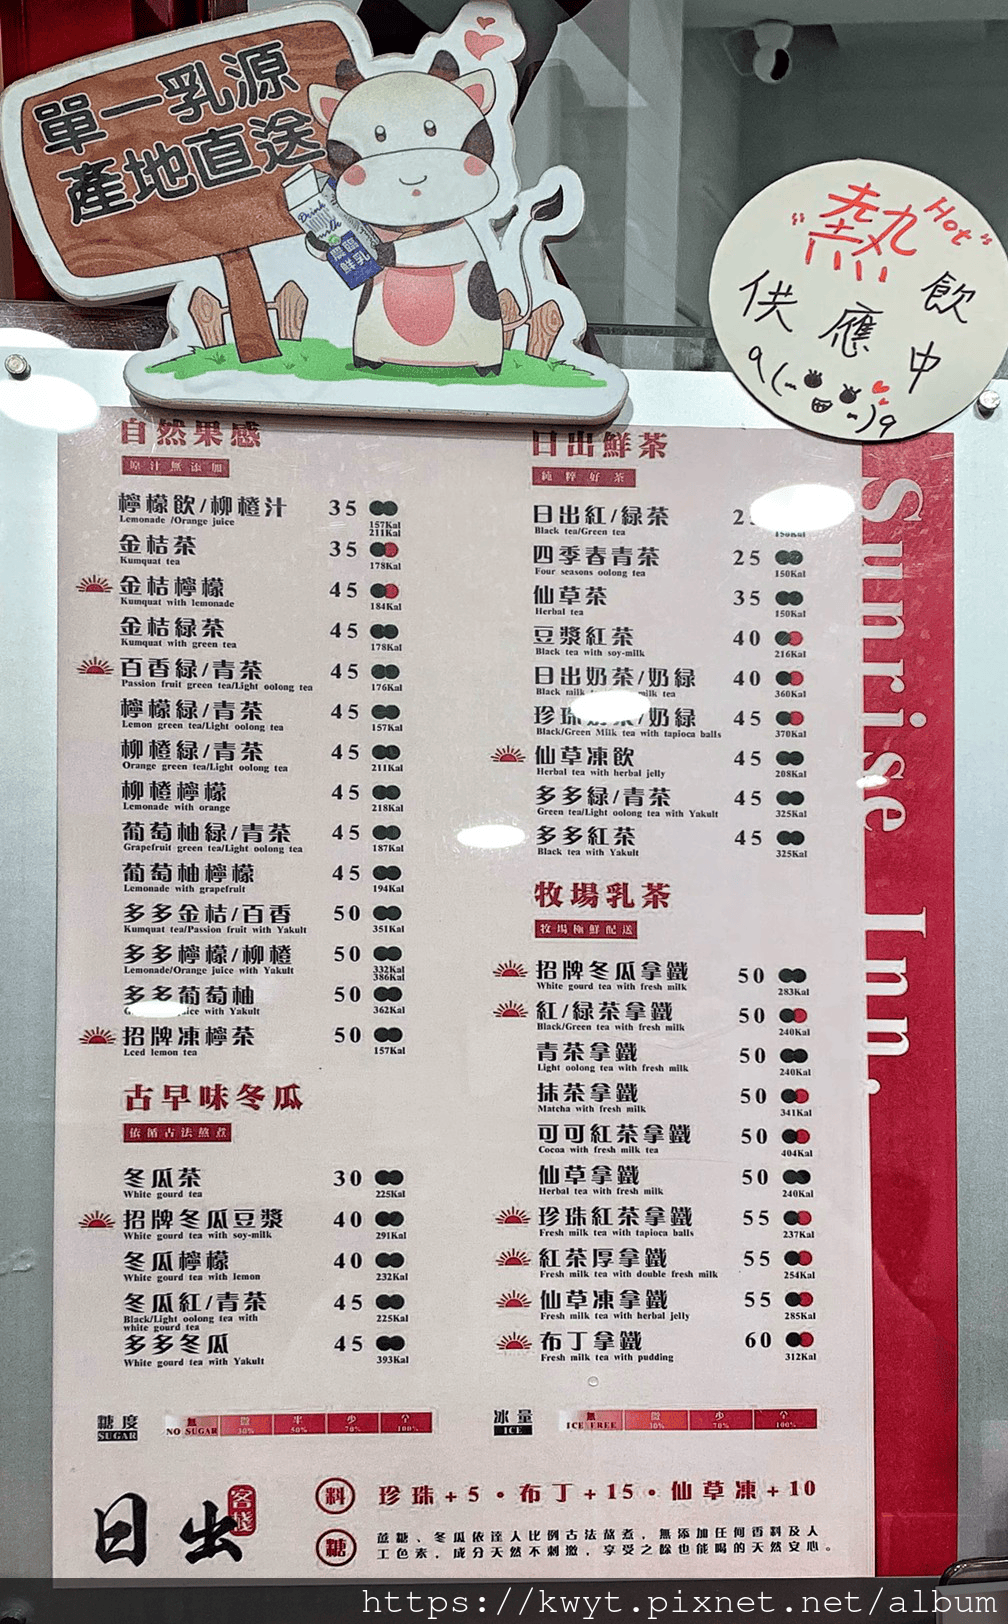 單一乳源
產地直送
Drink
milk
鮮乳
"熱 Hot"
飲
供應中
自然果感
原汁無添加
檸檬飲/柳橙汁 35
Lemonade /Orange juice 157Kal
211Kal
金桔茶 35
Kumquat tea 178Kal
金桔檸檬 45
Kumquat with lemonade 184Kal
金桔綠茶 45
Kumquat with green tea 178Kal
百香綠/青茶 45
Passion fruit green tea/Light oolong tea 176Kal
檸檬綠/青茶 45
Lemon green tea/Light oolong tea 157Kal
柳橙綠/青茶 45
Orange green tea/Light oolong tea 211Kal
柳橙檸檬 45
Lemonade with orange 218Kal
葡萄柚綠/青茶 45
Grapefruit green tea/Light oolong tea 187Kal
葡萄柚檸檬 45
Lemonade with grapefruit 194Kal
多多金桔/百香 50
Kumquat tea/Passion fruit with Yakult 351Kal
多多檸檬/柳橙 50
Lemonade/Orange juice with Yakult 332Kal
386Kal
多多葡萄柚 50
juice with Yakult 362Kal
招牌凍檸茶 50
Lced lemon tea 157Kal
古早味冬瓜
依循古法熬煮
冬瓜茶 30
White gourd tea 225Kal
招牌冬瓜豆漿 40
White gourd tea with soy-milk 291Kal
冬瓜檸檬 40
White gourd tea with lemon 232Kal
冬瓜紅/青茶 45
Black/Light oolong tea with 225Kal
white gourd tea
多多冬瓜 45
White gourd tea with Yakult 393Kal
日出鮮茶
純粹好茶
日出紅/綠茶
Black tea/Green tea
四季春青茶 25
Four seasons oolong tea 150Kal
仙草茶 35
Herbal tea 150Kal
豆漿紅茶 40
Black tea with soy-milk 216Kal
日出奶茶/奶綠 40
Black milk milk tea 360Kal
珍珠奶茶/奶綠 45
Black/Green Milk tea with tapioca balls 370Kal
仙草凍飲 45
Herbal tea with herbal jelly 208Kal
多多綠/青茶 45
Green tea/Light oolong tea with Yakult 325Kal
多多紅茶 45
Black tea with Yakult 325Kal
牧場乳茶
牧場極鮮配送
招牌冬瓜拿鐵 50
White gourd tea with fresh milk 283Kal
紅/綠茶拿鐵 50
Black/Green tea with fresh milk 240Kal
青茶拿鐵 50
Light oolong tea with fresh milk 240Kal
抹茶拿鐵 50
Matcha with fresh milk 341Kal
可可紅茶拿鐵 50
Cocoa with fresh milk tea 404Kal
仙草拿鐵 50
Herbal tea with fresh milk 240Kal
珍珠紅茶拿鐵 55
Fresh milk tea with tapioca balls 237Kal
紅茶厚拿鐵 55
Fresh milk tea with double fresh milk 254Kal
仙草凍拿鐵 55
Fresh milk tea with herbal jelly 285Kal
布丁拿鐵 60
Fresh milk tea with pudding 312Kal
Sunrise Inn.
糖度 無 微 半 少 全
SUGAR NO SUGAR 30% 50% 70% 100%
冰量 無 微 少 全
ICE ICE FREE 30% 70% 100%
日出
客棧
料 珍珠+5·布丁+15·仙草凍+10
糖 蔗糖、冬瓜依達人比例古法熬煮,無添加任何香料及人
工色素,成分天然不刺激,享受之餘也能喝的天然安心。
https://kwyt.pixnet.net/album